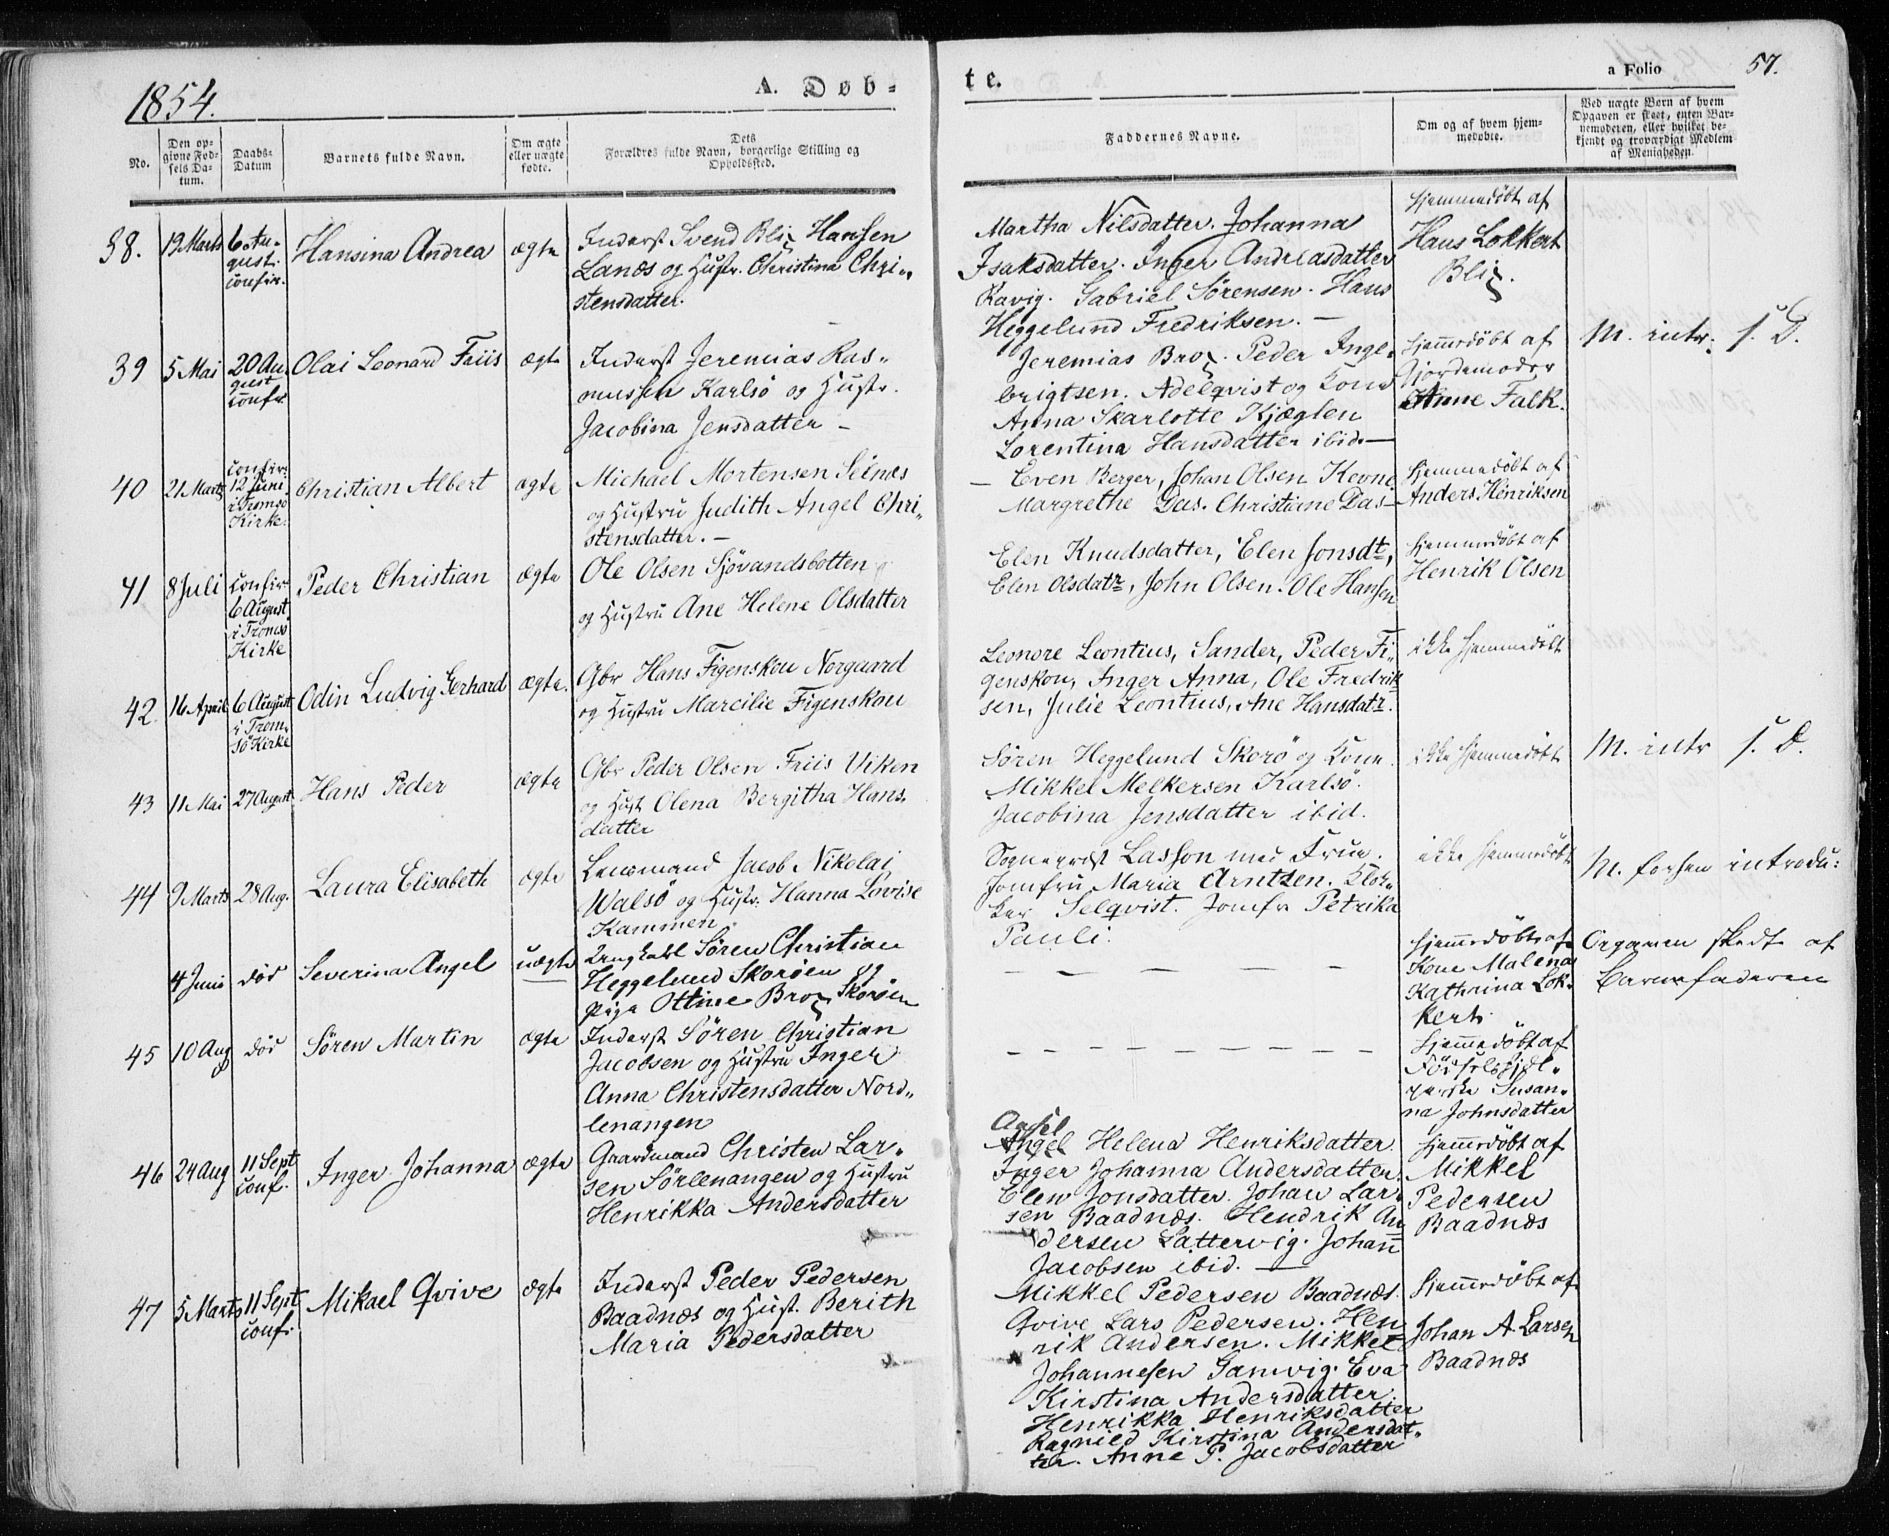 1854.
A. Døb-
te.
a Folio
57.
No.
Den op-
givne Fød-
sels Da-
tum.
Daabs-
Datum
Barnets fulde Navn.
Om ægte
eller uægte
fødte.
Dets
Forældres fulde Navn, borgerlige Stilling og
Opholdssted.
Faddernes Navne.
Om og af hvem hjem-
medøbte.
Ved uægte Børn af hvem
Opgaven er skeet, enten Bar-
nemoderen, eller hvilket be-
kjendt og troværdigt Medlem
af Menigheden.
38.
19 Marts
6 Au-
gust.
confir.
Hansina Andrea
ægte
Inderst Svend Blix Hansen
Lanæs og Hustr. Christina Chri-
stensdatter.
Martha Nilsdatter. Johanna
Isaksdatter. Inger Andreasdatter
Ravig. Gabriel Sørensen. Hans
Heggelund Fredriksen. —
Hjemmedøbt af
Hans Lokkert
Blix.
39
5 Mai
20 Au-
gust
confr.
Olai Leonard Friis
ægte
Inderst Jeremias Ras-
mussen Karlsö og Hustr.
Jacobina Jensdatter —
Jeremias Brox. Peder Inge-
brigtsen. Adelqvist og Kone
Anna Skarlotte Kjæglen
Lorentina Hansdatter ibid. —
Hjemedøbt af
Gjordemoder
Anne Falk.
M. intr. s. D.
40
21 Marts
confir.
12 Juni
i Tromsö
Kirke.
Christian Albert
ægte
Michael Mortensen Seines
og Hustru Judith Angel Chri-
stensdatter. —
— Even Berger, Johan Olsen Kevne
Margrethe Das. Christine Das —
Hjemmedøbt af
Anders Henriksen
41
8 Juli
confir.
6 August
i Tromsö
Kirke
Peder Christian
ægte
Ole Olsen Sjövandsbotten
og Hustru Ane Helene Olsdatter
Elen Knudsdatter, Elen Jonsdt,
Elen Olsdatr, John Olsen. Ole Hansen
Hjemmedøbt af
Henrik Olsen
42.
16 April
6 August
i Trom-
sö Kirke
Odin Ludvig Gerhard
ægte.
Gbr Hans Figenskou Norgaard
og Hustru Marcilie Figenskou
Leonore Leontius, Sander, Peder Fi-
genskou, Inger Anna, Ole Fredrik-
sen, Julie Leontius, Ane Hansdatr.
ikke hjemmedöbt
43
11 Mai
27 August
Hans Peder
ægte
Gbr Peder Olsen Friis Viken
og Hust Olena Bergitha Hans
datter
Søren Heggelund Skorö og Kone.
Mikkel Melkersen Karlsö.
Jacobina Jensdatter ibid.
ikke hjemmedöbt
M. intr s. D.
44
9 Marts
28 Aug.
Laura Elisabeth
ægte
Lensmand Jacob Nikolai
Walsö og Hustr. Hanna Lovise
Kammen
Sognepræst Lasson med Frue.
Jomfru Maria Arntzen. Klok-
ker Selqvist. Jomfr Petrika
Pauli.
ikke hjemmedøbt
M. forhen introdu:
4 Juni
död
Severina Angel
uægte
Ungkarl Sören Christian
Heggelund Skorøen og
Pige Ottine Brox Skorøen
— — — —
Hjemedøbt af
Kone Malena
Kathrina Lok-
kert.
Opgaven skedt af
Barnefaderen
45
10 Aug
död
Sören Martin
ægte
Inderst Sören Christian
Jacobsen og Hustru Inger
Anna Christensdatter Nord-
lenangen
— — — — — — — —
Hjemedøbt af
Födselshjel-
perske Susan-
na Johnsdatter
46
24 Aug
11 Sept
conf.
Inger Johanna
ægte
Gaardmand Christen Lar-
sen Sörlenangen og Hustru
Henrikka Andersdatter
Angel
Angel Helena Henriksdatter.
Inger Johanna Andersdatter.
Elen Jonsdatter. Johan Lar-
sen Baadnæs. Hendrik An
dersen Lattervig. Johan
Jacobsen ibid. —
Hjemedøbt af
Mikkel
Pedersen
Baadnæs
47
5 Marts
11 Sept
conf.
Mikael Qvive
ægte
Inderst Peder Pedersen
Baadnæs og Hust. Berith
Maria Pedersdatter
Mikkel Pedersen Baadnæs.
Qvive Lars Pedersen. Hen
rik Andersen. Mikkel
Johannesen Gamvig. Eva
Kirstina Andersdatter.
Henrikka Henriksdatter
Ragnild Kirstina Andersdat-
ter. Anne P. Jacobsdatter
Hjemedøbt af
Johan A Larsen
Baadnæs